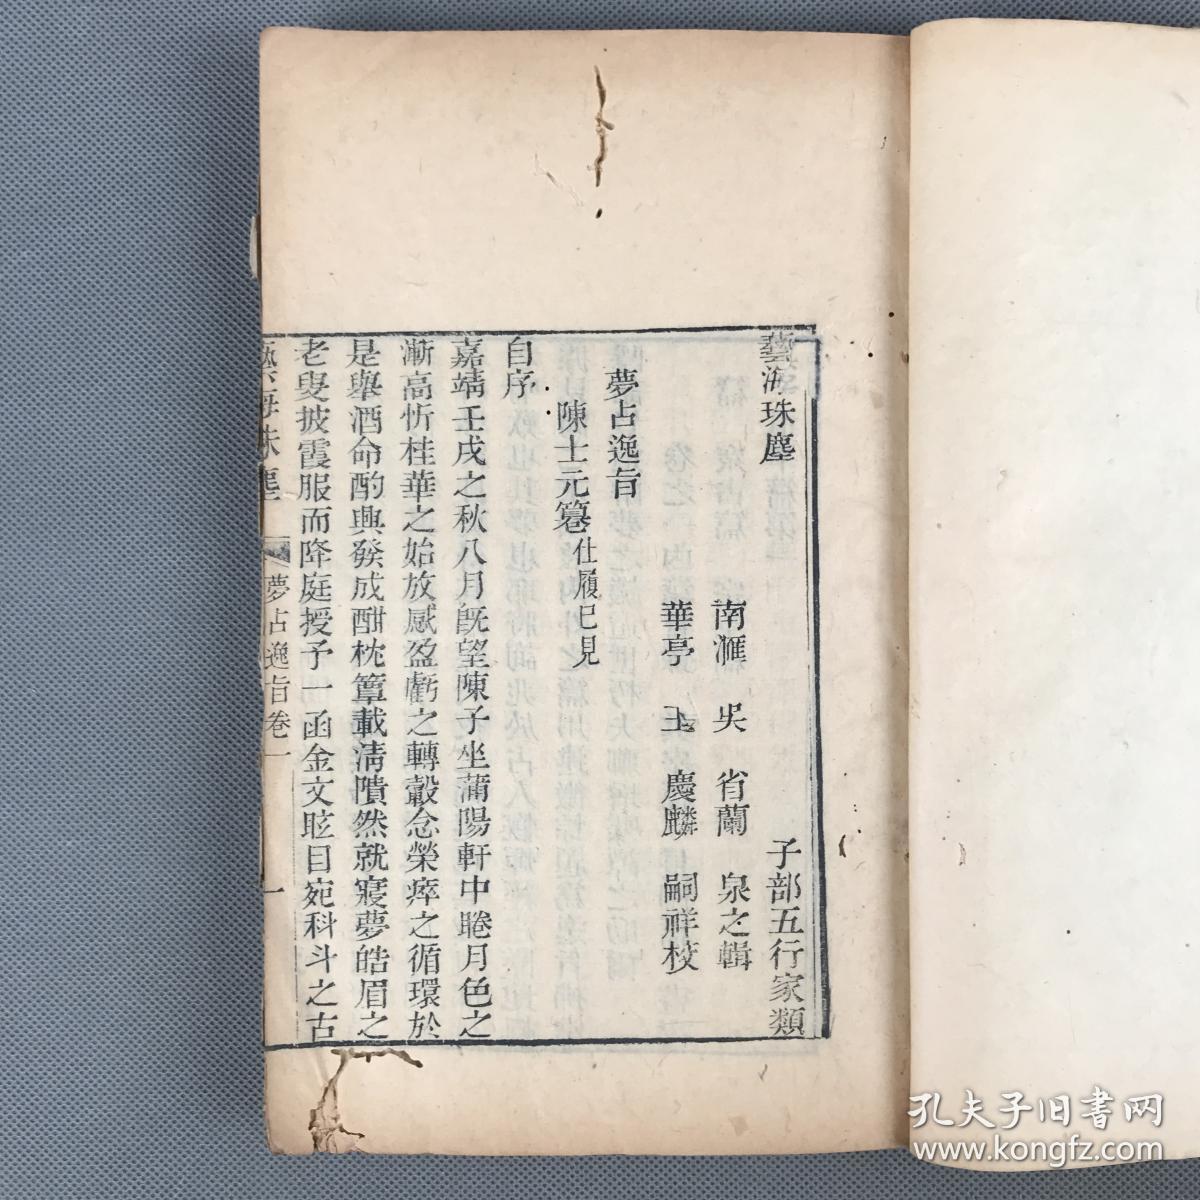 藝海珠塵　子部五行家類
南滙　吳　省蘭　泉之輯
華亭　王　慶麟　嗣祥校
夢占逸旨
陳士元篹仕履已見
自序
嘉靖壬戌之秋八月旣望陳子坐蒲陽軒中睠月色之
漸高忻桂華之始放感盈虧之轉轂念榮瘁之循環於
是舉酒命酌興發成酣枕簟載淸隤然就寢夢皓眉之
老叟披霞服而降庭授予一函金文眩目宛科斗之古
藝海珠塵　夢占逸旨卷一　一
孔夫子旧书网
www.kongfz.com